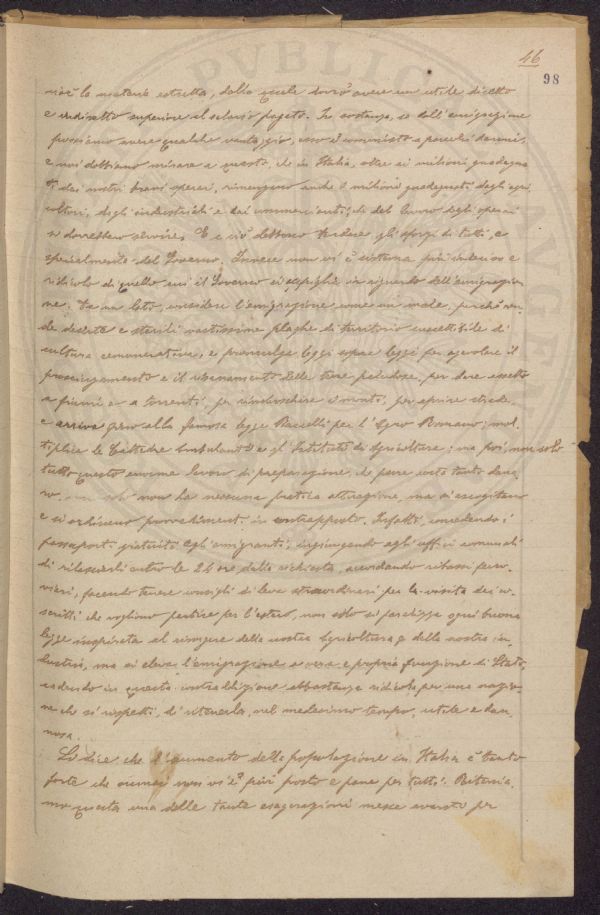 46
98
cioè la materia estratta, dalla quale dovrà avere un utile diretto
e indiretto superiore al salario pagato. In sostanza, se dall'emigrazione
possiamo avere qualche vantaggio, esso è commisto a parecchi danni,
e noi dobbiamo mirare a questo, che in Italia, oltre ai milioni guadagna
ti dai nostri bravi operai, rimangano anche i milioni guadagnati dagli agri
coltori, dagli industriali e dai commercianti, che del lavoro degli operai
si dovrebbero servire. E a ciò debbono tendere gli sforzi di tutti, e
specialmente del Governo. Invece non vi è sistema più
ridicolo di quello cui il Governo si appiglia in riguardo dell'emigrazio
ne. Da un lato, considera l'emigrazione come un male, perchè ren
de deserte e sterili vastissime plaghe di territorio suscettibile di
cultura remunerativa, e promulga leggi sopra leggi per agevolare il
prosciugamento e il risanamento delle terre paludose, per dare assetto
a fiumi e a torrenti, per rimboschire i monti, per aprire strade,
e arriva fino alla famosa legge Baccelli per l'Agro Romano; mol
tiplica le Cattedre Ambulanti e gl'Istituti di Agricoltura; ma poi, non solo
tutto questo enorme lavoro di preparazione, che pure costa tanto dana
ro, non ha nessuna pratica attuazione, ma si escogitano
e si ordiscono provvedimenti in contrapposto. Infatti, concedendo i
passaporti gratuiti agli emigranti, ingiungendo agli uffici comunali
di rilasciarli entro le 24 ore dalla richiesta, accordando ribassi ferro
viari, facendo tenere consigli di leva straordinari per la visita dei co
scritti che vogliono partire per l'estero, non solo si paralizza ogni buona
legge inspirata al risorgere della nostra Agricoltura e della nostra in
dustria, ma si eleva l'emigrazione a vera e propria funzione di Stato,
cadendo in questa contraddizione abbastanza ridicola per una nazio
ne che si rispetti, di ritenerla, nel medesimo tempo, utile e dan
nosa.
Si dice che l'aumento della popolazione in Italia è tanto
forte che oramai non vi è più posto e pane per tutti. Riteniá
mo questa una delle tante esagerazioni messe avanti per